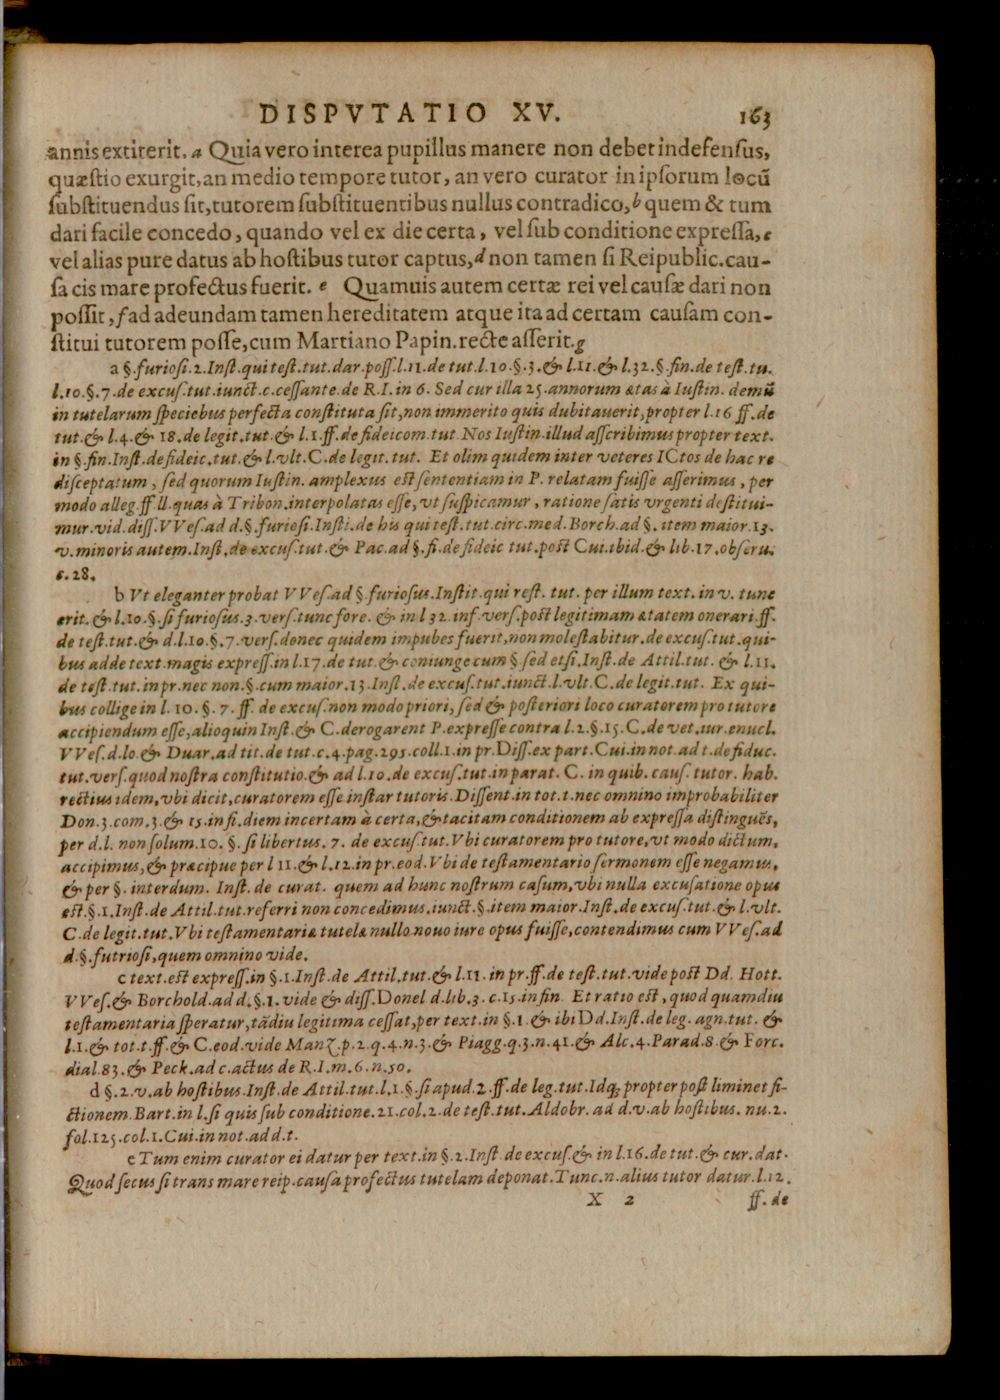 DISPVTATIO XV. 163
annis extiterit. a Quia vero interea pupillus manere non debet indefensus,
quæstio exurgit, an medio tempore tutor, an vero curator in ipsorum locũ
substituendus sit, tutorem substituentibus nullus contradico, b quem & tum
dari facile concedo, quando vel ex die certa, vel sub conditione expressa, c
vel alias pure datus ab hostibus tutor captus, d non tamen si Reipublic. cau-
sa cis mare profectus fuerit. e Quamuis autem certæ rei vel causæ dari non
possit, f ad adeundam tamen hereditatem atque ita ad certam causam con-
stitui tutorem posse, cum Martiano Papin. recte asserit. g
a §. furiosi. 2. Inst. qui test. tut. dar. poss. l. 11. de tut. l. 10. §. 3. & l. 11. & l. 32. §. fin. de test. tu.
l. 10. §. 7. de excus. tut. iunct. c. cessante. de R. I. in 6. Sed cur illa 25. annorum ætas à Iustin. demũ
in tutelarum speciebus perfecta constituta sit, non immerito quis dubitauerit, propter l. 16 ff. de
tut. & l. 4. & 18. de legit. tut. & l. 1. ff. de fideicom. tut. Nos Iustin. illud asscribimus propter text.
in §. fin. Inst. de fideic. tut. & l. vlt. C. de legit. tut. Et olim quidem inter veteres ICtos de hac re
disceptatum, sed quorum Iustin. amplexus est sententiam in P. relatam fuisse asserimus, per
modo alleg. ff. ll. quas à Tribon. interpolatas esse, vt suspicamur, ratione satis vrgenti destitui-
mur. vid. diss. VVes. ad d. §. furiosi. Insti. de his qui test. tut. circ. med. Borch. ad §. item maior. 13.
v. minoris autem. Inst. de excus. tut. & Pac. ad §. fi. de fideic tut. post Cui. ibid. & lib. 17. obseru.
c. 28.
b Vt eleganter probat VVes. ad §. furiosus. Instit. qui rest. tut. per illum text. in v. tunc
erit. & l. 10. §. si furiosus. 3. vers. tunc fore. & in l 32. inf. vers. post legitimam ætatem onerari. ff.
de test. tut. & d. l. 10. §. 7. vers. donec quidem impubes fuerit, non molestabitur. de excus. tut. qui-
bus adde text. magis express. in l. 17. de tut. & coniunge cum §. sed etsi. Inst. de Attil. tut. & l. 11.
de test. tut. in pr. nec non. §. cum maior. 13. Inst. de excus. tut. iunct. l. vlt. C. de legit. tut. Ex qui-
bus collige in l. 10. §. 7. ff. de excus. non modo priori, sed & posteriori loco curatorem pro tutore
accipiendum esse, alioquin Inst. & C. derogarent P. expresse contra l. 2. §. 15. C. de vet. iur. enucl.
VVes. d. lo. & Duar. ad tit. de tut. c. 4. pag. 295. coll. 1. in pr. Diss. ex part. Cui. in not. ad t. de fiduc.
tut. vers. quod nostra constitutio. & ad l. 10. de excus. tut. in parat. C. in quib. caus. tutor. hab.
rectius idem, vbi dicit, curatorem esse instar tutoris. Dissent. in tot. t. nec omnino improbabiliter
Don. 3. com. 3. & 15. in fi. diem incertam à certa, & tacitam conditionem ab expressa distinguẽs,
per d. l. non solum. 10. §. si libertus. 7. de excus. tut. Vbi curatorem pro tutore, vt modo dictum,
accipimus, & præcipue per l 11. & l. 12. in pr. eod. Vbi de testamentario sermonem esse negamus,
& per §. interdum. Inst. de curat. quem ad hunc nostrum casum, vbi nulla excusatione opus
est. §. 1. Inst. de Attil. tut. referri non concedimus. iunct. §. item maior. Inst. de excus. tut. & l. vlt.
C. de legit. tut. Vbi testamentariæ tutelæ nullo nouo iure opus fuisse, contendimus cum VVes. ad
d. §. futriosi, quem omnino vide.
c text. est express. in §. 1. Inst. de Attil. tut. & l. 11. in pr. ff. de test. tut. vide post Dd. Hott.
VVes. & Borchold. ad d. §. 1. vide & diss. Donel d. lib. 3. c. 15. in fin. Et ratio est, quod quamdiu
testamentaria speratur, tãdiu legitima cessat, per text. in §. 1. & ibi Dd. Inst. de leg. agn. tut. &
l. 1. & tot. t. ff. & C. eod. vide Manz. p. 2. q. 4. n. 3. & Piagg. q. 3. n. 41. & Alc. 4. Parad. 8. & Forc.
dial. 83. & Peck. ad c. actus de R. I. m. 6. n. 50.
d §. 2. v. ab hostibus. Inst. de Attil. tut. l. 1. §. si apud. 2. ff. de leg. tut. Idq; propter post liminet fi-
ctionem. Bart. in l. si quis sub conditione. 21. col. 2. de test. tut. Aldobr. ad d. v. ab hostibus. nu. 2.
fol. 125. col. 1. Cui. in not. ad d. t.
e Tum enim curator ei datur per text. in §. 2. Inst. de excus. & in l. 16. de tut. & cur. dat.
Quod secus si trans mare reip. causa profectus tutelam deponat. Tunc. n. alius tutor datur. l. 12.
X 2 ff. de